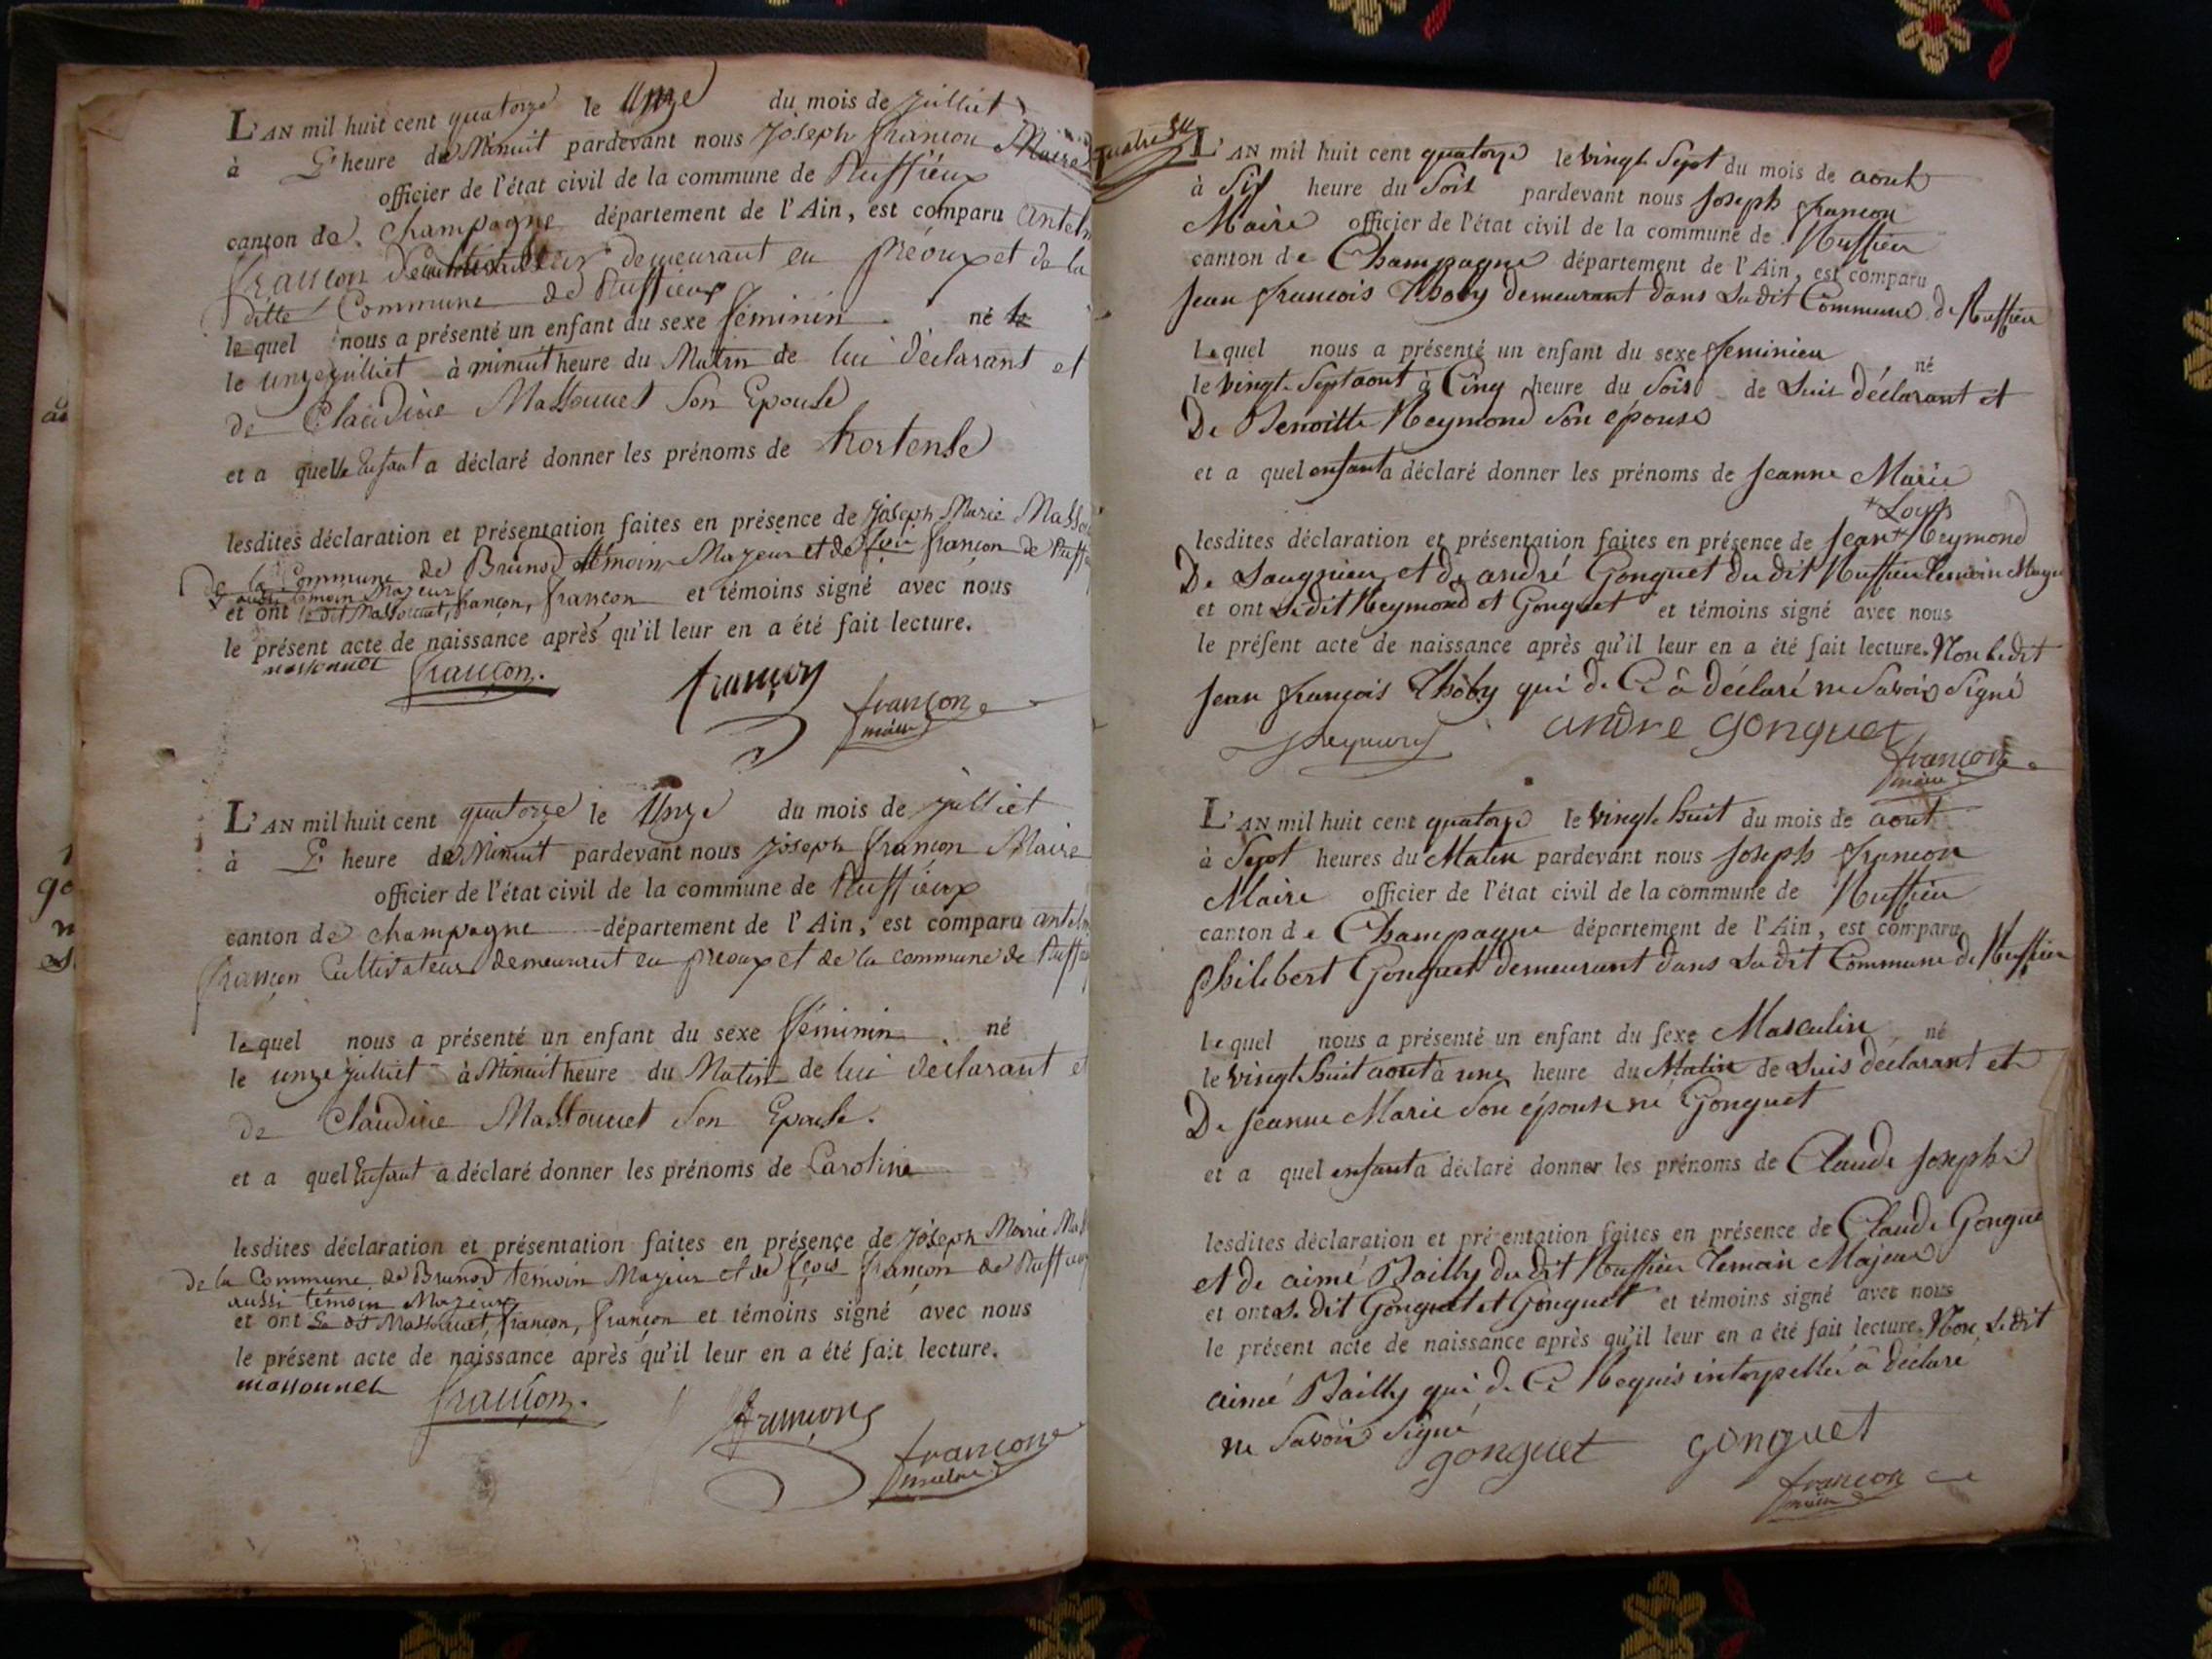 L'AN mil huit cent quatorze le Unze du mois de juilliet
à L' heure de Minuit pardevant nous joseph françon Maire
officier de l'état civil de la commune de Ruffieux
canton de Champagne département de l'Ain, est comparu antelm
françon demeurant en préoux et de la
ditte Commune de Ruffieux
le quel nous a présenté un enfant du sexe féminin né
le unze juilliet à minuit heure du Matin de lui déclarant et
de Claudine Massonnet Son Epouse
et a quelle Enfant a déclaré donner les prénoms de hortense
lesdites déclaration et présentation faites en présence de joseph Marie Masso
de la Commune de Brunod témoin Mazeur et de françon de Ruffi
aussi témoin Mazeur
et ont le dit Massonnet, françon, françon et témoins signé avec nous
le présent acte de naissance après qu'il leur en a été fait lecture.
massonnet françon. françon françon
maire
L'AN mil huit cent quatorze le Unze du mois de juilliet
à L' heure de Minuit pardevant nous joseph françon Maire
officier de l'état civil de la commune de Ruffieux
canton de champagne département de l'Ain, est comparu antelm
françon Cultivateur demeurant en préoux et de la commune de Ruffieu
le quel nous a présenté un enfant du sexe féminin né
le unze juilliet à Minuit heure du Matin de lui déclarant et
de Claudine Massonnet Son Epouse.
et a quel Enfant a déclaré donner les prénoms de Caroline
lesdites déclaration et présentation faites en présence de joseph Marie Mas
de la Commune de Brunod témoin Mazeur et de françon de Ruffieux
aussi témoin Mazeur
et ont Le dit Massonnet, françon, françon et témoins signé avec nous
le présent acte de naissance après qu'il leur en a été fait lecture.
massonnet françon. françon françon
maire
L'AN mil huit cent quatorze le vingt Sept du mois de aout
à Six heure du Soir pardevant nous Joseph françon
Maire officier de l'état civil de la commune de Ruffieu
canton de Champagne département de l'Ain, est comparu
Jean françois Thoby demeurant dans La dit Commune de Ruffieu
Le quel nous a présenté un enfant du sexe feminieu né
le vingt Sept aout à Cinq heure du Soir de Luis déclarant et
De Benoitte Reymond Son épouse
et a quel enfant a déclaré donner les prénoms de Jeanne Marie
+ Louis
lesdites déclaration et présentation faites en présence de Jean + Reymond
De Saugnieu et de andré Gonguet du dit Ruffieu Temoin Mageu
et ont Le dit Reymond et Gonguet et témoins signé avec nous
le présent acte de naissance après qu'il leur en a été fait lecture. Non Le dit
Jean françois Thoby qui de Ce â déclaré ne Savoir Signé
Reymond andre gonguet
françon
maire
L'AN mil huit cent quatorze le vingt huit du mois de aout
à Sept heures du Matin pardevant nous Joseph françon
Maire officier de l'état civil de la commune de Ruffieu
canton de Champagne département de l'Ain, est comparu
Philibert Gonguet demeurant dans La dit Commune de Ruffieu
le quel nous a présenté un enfant du sexe Masculin né
le vingt huit aout à une heure du Matin de Luis déclarant et
De Jeanne Marie Son épouse né Gonguet
et a quel enfant a déclaré donner les prénoms de Claude Joseph
lesdites déclaration et présentation faites en présence de Claude Gongue
et de aimé Bailly du dit Ruffieu Temoin Majeur
et ont Le dit Gonguet et Gonguet et témoins signé avec nous
le présent acte de naissance après qu'il leur en a été fait lecture. Non Le dit
aimé Bailly qui de Ce Requis interpellé â déclaré
ne Savoir Signé
gonguet gonguet
françon
maire